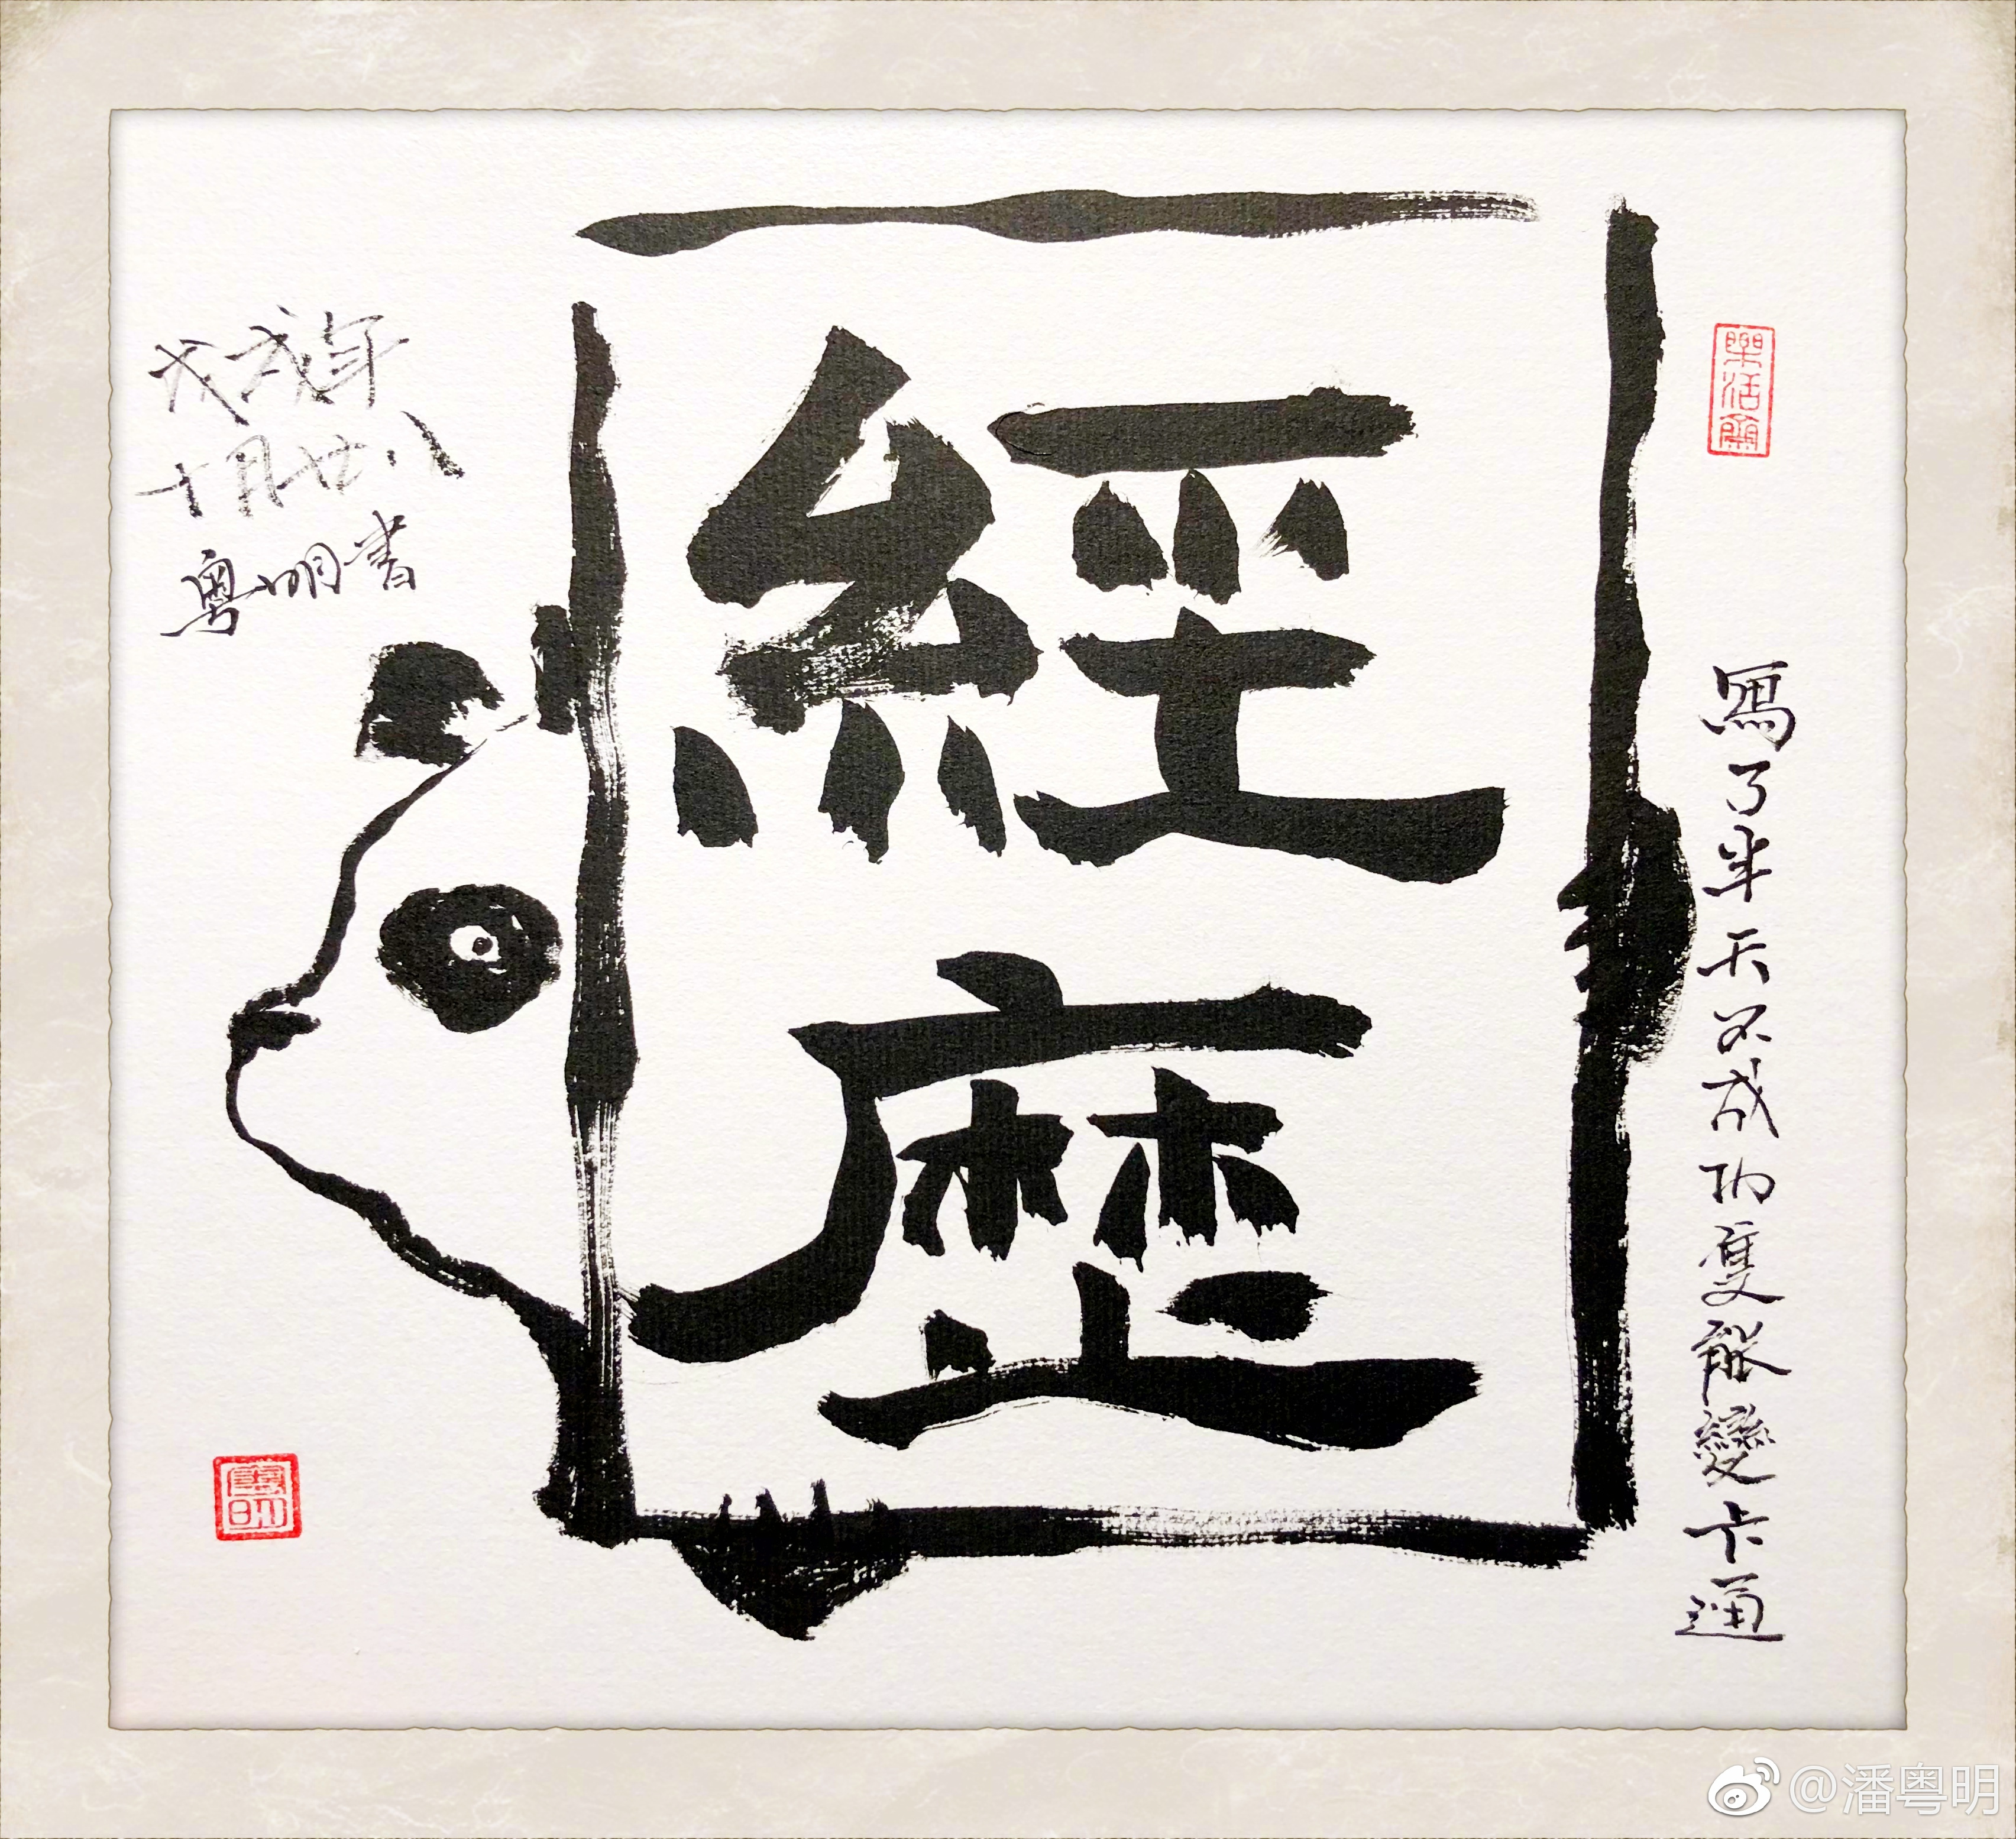 經歷
寫了半天不成功隻能變卡通
戊戌年
十月廿八
粵明書
粵明
@潘粤明